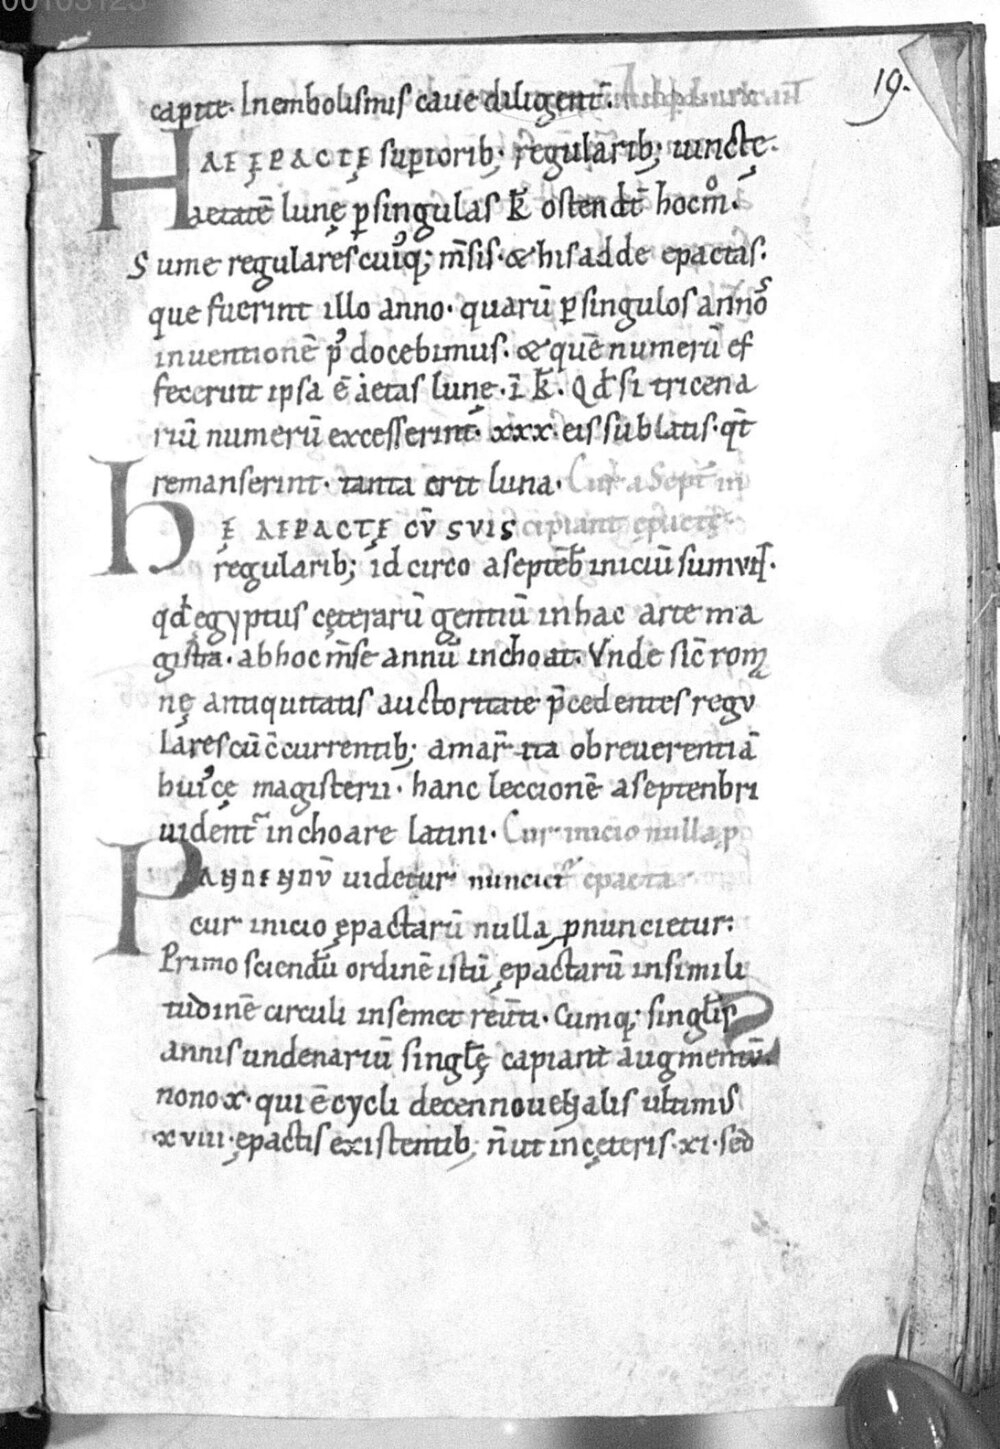 00103123
19.
capite. In embolismis caue diligent̄.
HAE EPACTĘ suꝑiorib; regularib; iunctę.
aetatē lunę ꝑ singulas k̄ ostend̄t hoc m̊.
Sume regulares cuiꝰq; m̄sis. & his adde epactas.
que fuerint illo anno. quarū ꝑ singulos annoꝰ
inuentionē pꝰ docebimus. & quē numerū ef
fecerint ipsa ē aetas lunę. ī k̄. Qd̄ si tricena
riū numerū excesserint. xxx. eis sublatis. q̄t
remanserint. tanta erit luna. Cur a Sept̄ in
cipiant epactę
hĘ AEPACTĘ CV̄ SVIS
regularib; idcirco a septēb iniciū sum
qd̄ ęgyptus cęterarū gentiū in hac arte ma
gistra. ab hoc m̄se annū inchoat. Vnde sic̄ rom
nę antiquitatis auctoritate p̄cedentes regu
lares cū c̄currentib; a mar̄ ita ob reuerentiā
huiꝰcę magisterii. hanc leccionē a septenbri
uident̄ inchoare latini. Cur inicio nulla ꝓ
PAGNENDV̄ uidetur nunciet̄ epacta
cur inicio ępactarū nulla ꝓnuncietur:
Primo sciendū ordinē istū ępactarū in simili
tudinē circuli in semet reūti. Cumq; singl̄is
annis undenariū singl̄ę capiant augmentū.
nono x. qui ē cycli decennouenalis ultimus
.xviii. ępactis existentib; n̄ ut in cęteris. xi. sed